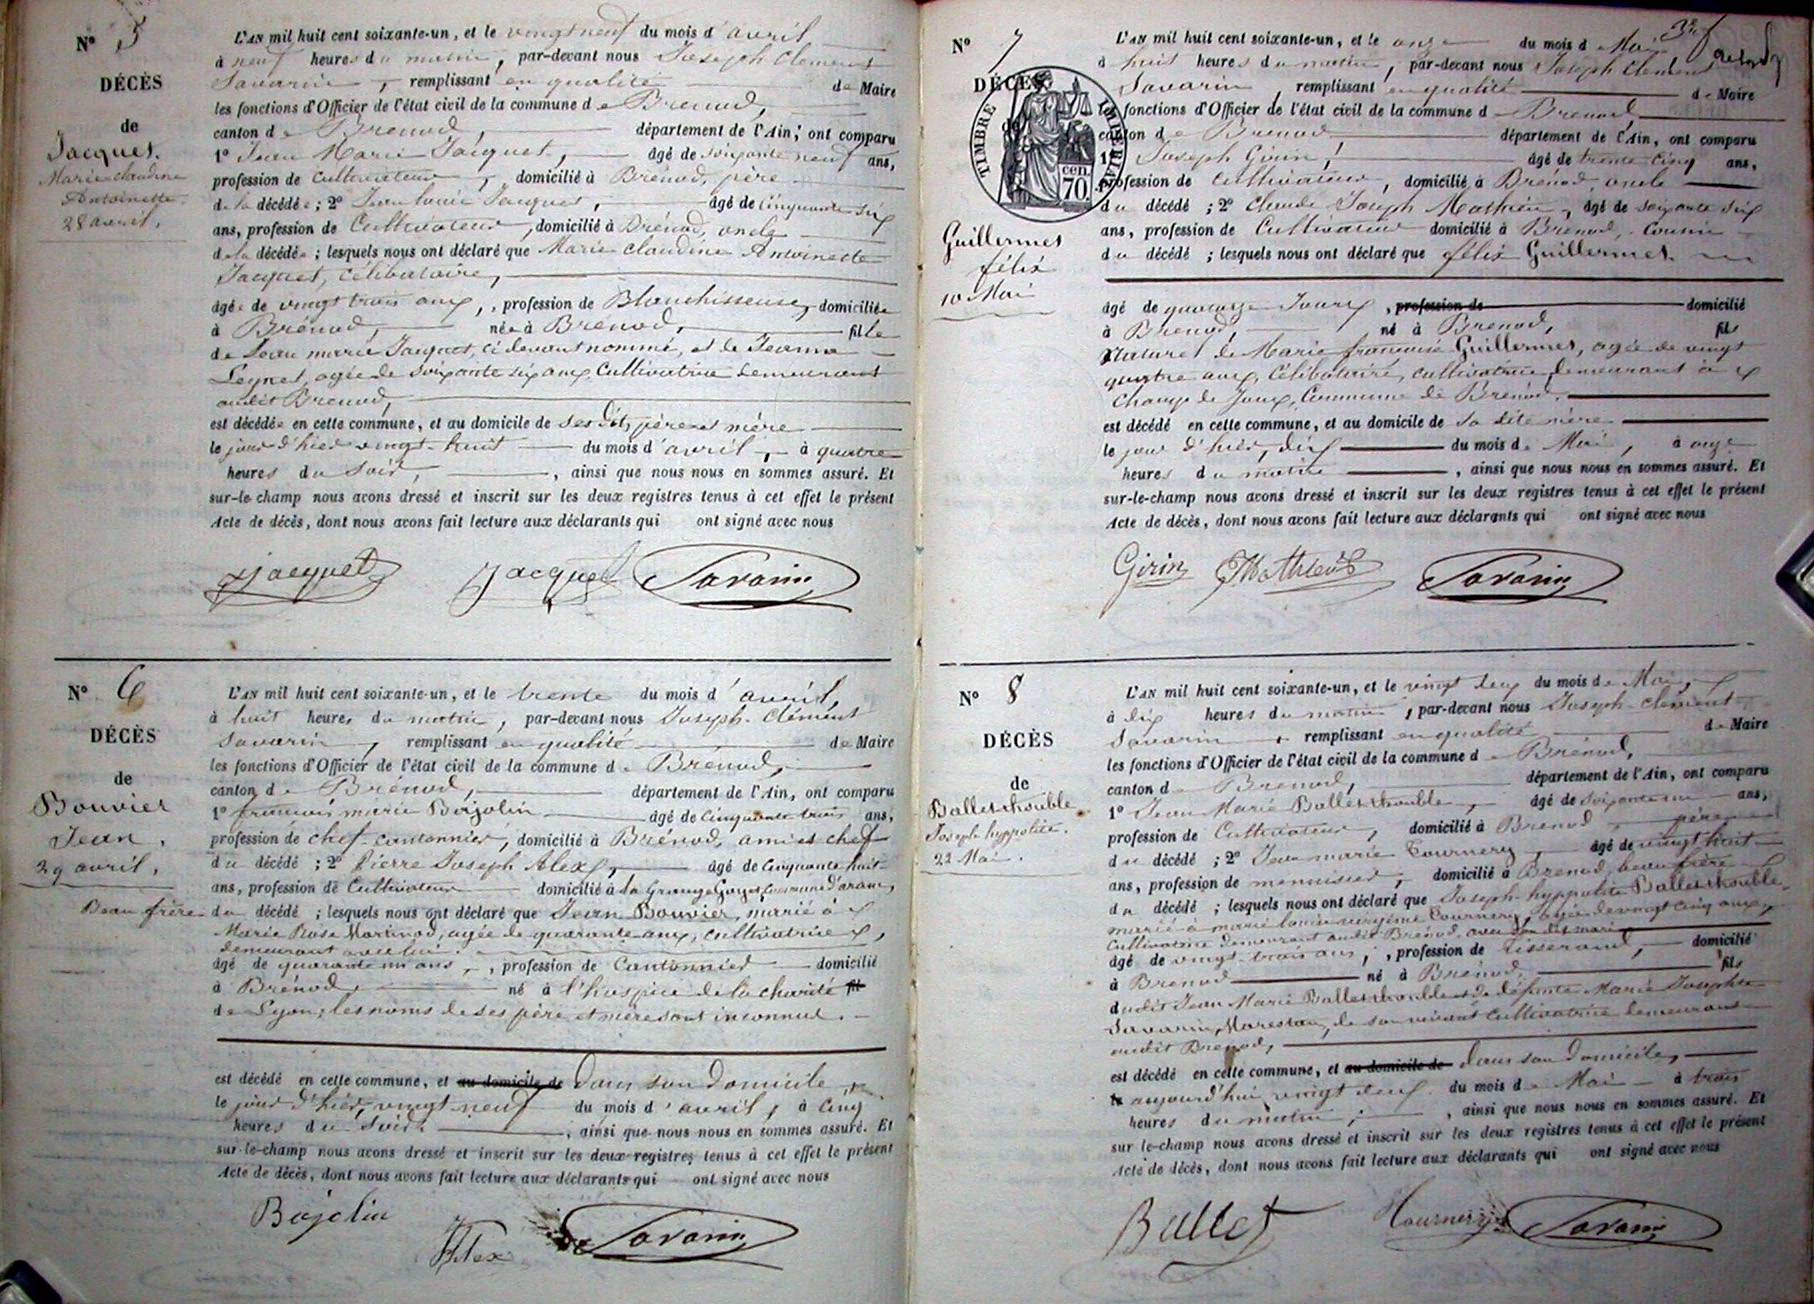 N° 5
DÉCÈS
de
Jacquet.
Marie claudine
Antoinette
28 avril.
L'AN mil huit cent soixante-un, et le vingt neuf du mois d'avril
à neuf heures du matin, par-devant nous Joseph Clément
Savarin, remplissant en qualité de Maire
les fonctions d'Officier de l'état civil de la commune de Brenod,
canton de Brenod, département de l'Ain, ont comparu
1° Jean Marie Jacquet, âgé de soixante neuf ans,
profession de cultivateur, domicilié à Brénod, père
de la décédée ; 2° Jean louis Jacquet, âgé de cinquante six
ans, profession de Cultivateur, domicilié à Brénod, oncle
de la décédée ; lesquels nous ont déclaré que Marie claudine Antoinette
Jacquet, célibataire,
âgée de vingt trois ans, profession de Blanchisseuse, domiciliée
à Brénod, née à Brénod, fille
de Jean marie Jacquet, ci devant nommé, et de Jeanne
Leynet, agée de soixante six ans, Cultivatrice demeurant
audit Brenod,
est décédée en cette commune, et au domicile de ses dits père et mère
le jour d'hier vingt-huit du mois d'avril, à quatre
heures du soir, ainsi que nous nous en sommes assuré. Et
sur-le-champ nous avons dressé et inscrit sur les deux registres tenus à cet effet le présent
Acte de décès, dont nous avons fait lecture aux déclarants qui ont signé avec nous
Jacquet Jacquet Savarin
N° 6
DÉCÈS
de
Bouvier
Jean.
29 avril.
Beau frère
L'AN mil huit cent soixante-un, et le trente du mois d'avril,
à huit heures du matin, par-devant nous Joseph Clément
Savarin, remplissant en qualité de Maire
les fonctions d'Officier de l'état civil de la commune de Brénod,
canton de Brénod, département de l'Ain, ont comparu
1° francois marie Bajolin âgé de cinquante trois ans,
profession de chef cantonnier, domicilié à Brénod, ami et chef
du décédé ; 2° Pierre Joseph Alex, âgé de cinquante huit
ans, profession de Cultivateur domicilié à la Grange commune d'aranc,
du décédé ; lesquels nous ont déclaré que Jean Bouvier, marié à
Marie Rose Martinod, agée de quarante ans, cultivatrice,
demeurant avec lui.
âgé de quarante un ans, profession de Cantonnier domicilié
à Brénod, né à l'hospice de la charité fil
de Lyon, les noms de ses père et mère sont inconnus.
est décédé en cette commune, et au domicile de dans son domicile,
le jour d'hier, vingt neuf du mois d'avril, à cinq
heures du soir, ainsi que nous nous en sommes assuré. Et
sur-le-champ nous avons dressé et inscrit sur les deux registres tenus à cet effet le présent
Acte de décès, dont nous avons fait lecture aux déclarants qui ont signé avec nous
Bajolin Alex Savarin
N° 7
DÉCÈS
TIMBRE IMPÉRIAL
70 cen.
Guillermet
félix
10 Mai
L'AN mil huit cent soixante-un, et le onze du mois de Mai
à huit heures du matin, par-devant nous Joseph Clément
Savarin, remplissant en qualité de Maire
les fonctions d'Officier de l'état civil de la commune de Brenod,
canton de Brenod département de l'Ain, ont comparu
1° Joseph Girin, âgé de trente cinq ans,
profession de cultivateur, domicilié à Brénod, oncle
du décédé ; 2° Claude Joseph Mathieu, âgé de soixante six
ans, profession de Cultivateur domicilié à Brénod, Cousin
du décédé ; lesquels nous ont déclaré que félix Guillermet.
âgé de quatorze Jours, profession de domicilié
à Brenod, né à Brenod, fils
Naturel de Marie françoise Guillermet, agée de vingt
quatre ans, célibataire, cultivatrice demeurant à
Champ de Joux, Commune de Brénod.
est décédé en cette commune, et au domicile de sa dite mère
le jour d'hier, dix du mois de Mai, à onze
heures du matin, ainsi que nous nous en sommes assuré. Et
sur-le-champ nous avons dressé et inscrit sur les deux registres tenus à cet effet le présent
Acte de décès, dont nous avons fait lecture aux déclarants qui ont signé avec nous
Girin Mathieu Savarin
N° 8
DÉCÈS
de
Ballet trouble
Joseph hyppolite.
22 Mai.
L'AN mil huit cent soixante-un, et le vingt deux du mois de Mai,
à dix heures du matin, par-devant nous Joseph Clément
Savarin, remplissant en qualité de Maire
les fonctions d'Officier de l'état civil de la commune de Brénod,
canton de Brenod, département de l'Ain, ont comparu
1° Jean Marie Ballet trouble, âgé de soixante un ans,
profession de Cultivateur, domicilié à Brenod, père
du décédé ; 2° Jean marie Tournery, âgé de vingt huit
ans, profession de menuisier, domicilié à Brenod, beau frère
du décédé ; lesquels nous ont déclaré que Joseph hyppolite Ballet trouble,
marié à marie louise Tournery, agée de vingt cinq ans,
Cultivatrice demeurant audit Brénod, avec son dit mari
âgé de vingt trois ans, profession de Tisserand, domicilié
à Brenod né à Brenod, fils
dudit Jean Marie Ballet trouble et de défunte Marie Josephte
Savarin Marestan, de son vivant cultivatrice demeurant
audit Brenod,
est décédé en cette commune, et au domicile de dans son domicile,
le aujourd'hui vingt deux du mois de Mai à trois
heures du matin, ainsi que nous nous en sommes assuré. Et
sur-le-champ nous avons dressé et inscrit sur les deux registres tenus à cet effet le présent
Acte de décès, dont nous avons fait lecture aux déclarants qui ont signé avec nous
Ballet Tournery Savarin